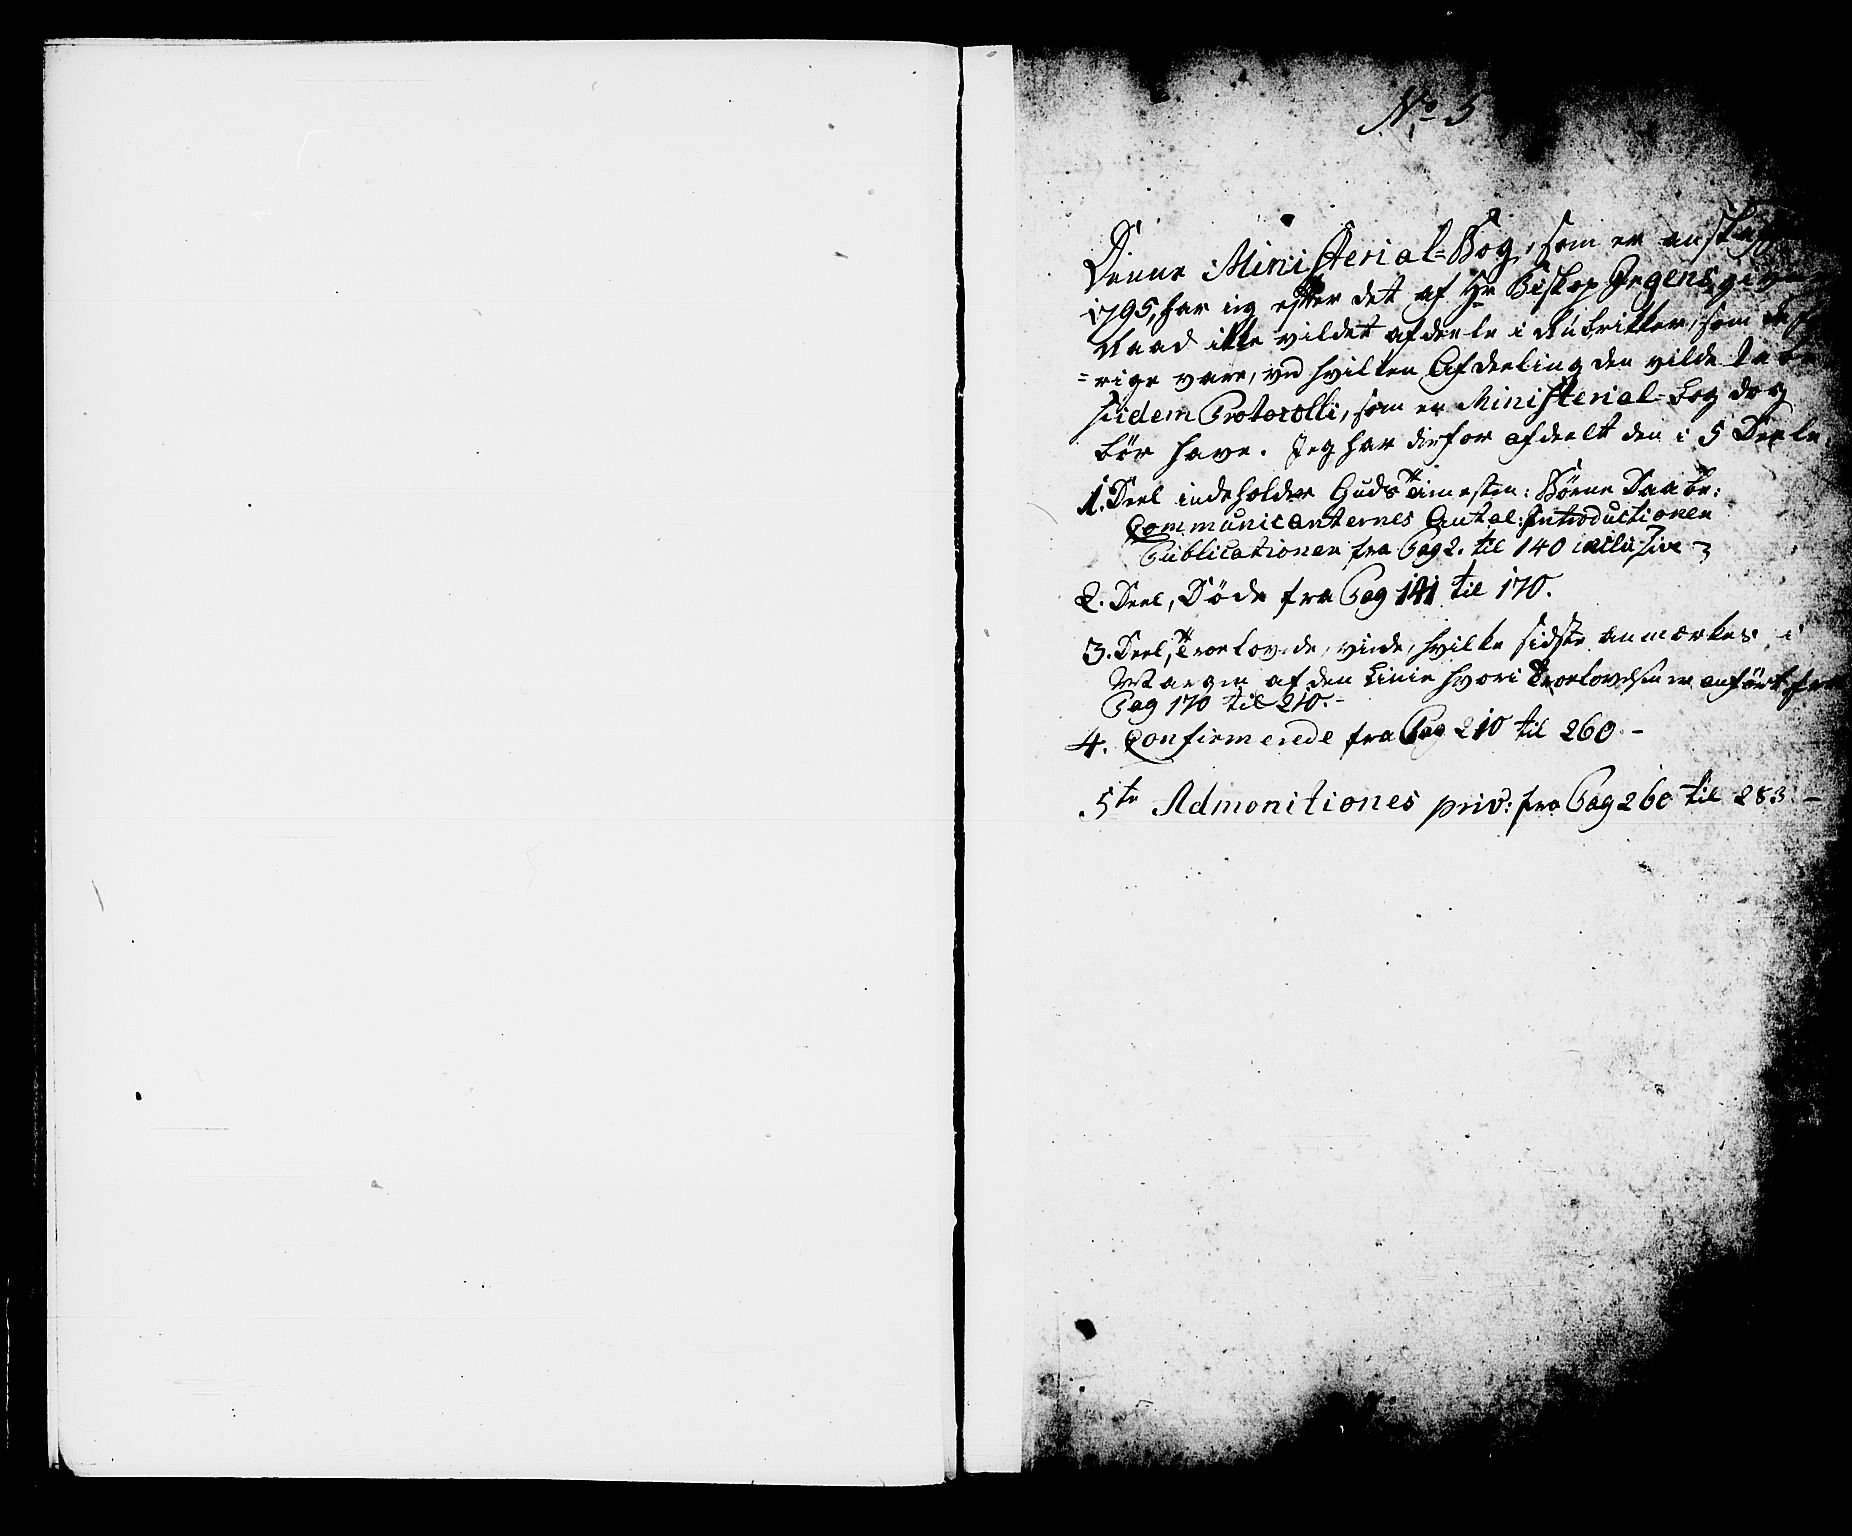 No 5
Denne Ministerial-Bog, som er anskaff
1795, har ieg efter det af Hr Biskop Jrgens givne
Raad ikke vildet afdeele i Rubrikker, som de fo
=rige vare, ved hvilken Afdeeling den vilde tabe
fidem Protocolli, som en Ministerial-bog dog
bör have. Jeg har derfor afdeelt den i 5 Deele.
1. Deel indeholder Guds Tienesten: Börne Daabe:
Communicanternes Antal: Introductioner
Publicationer fra Pag 2. til 140 inclusive
2. Deel, Döde fra Pag 141 til 170.
3. Deel, Troelovede, viede, hvilke sidste anmærkes i
Margen af den Linie hvori Troelovelsen er anfört fra
Pag 170 til 210.-
4. Confirmerede fra Pag 210 til 260 -
5te Admonitiones priv: fra Pag 260 til 283 -